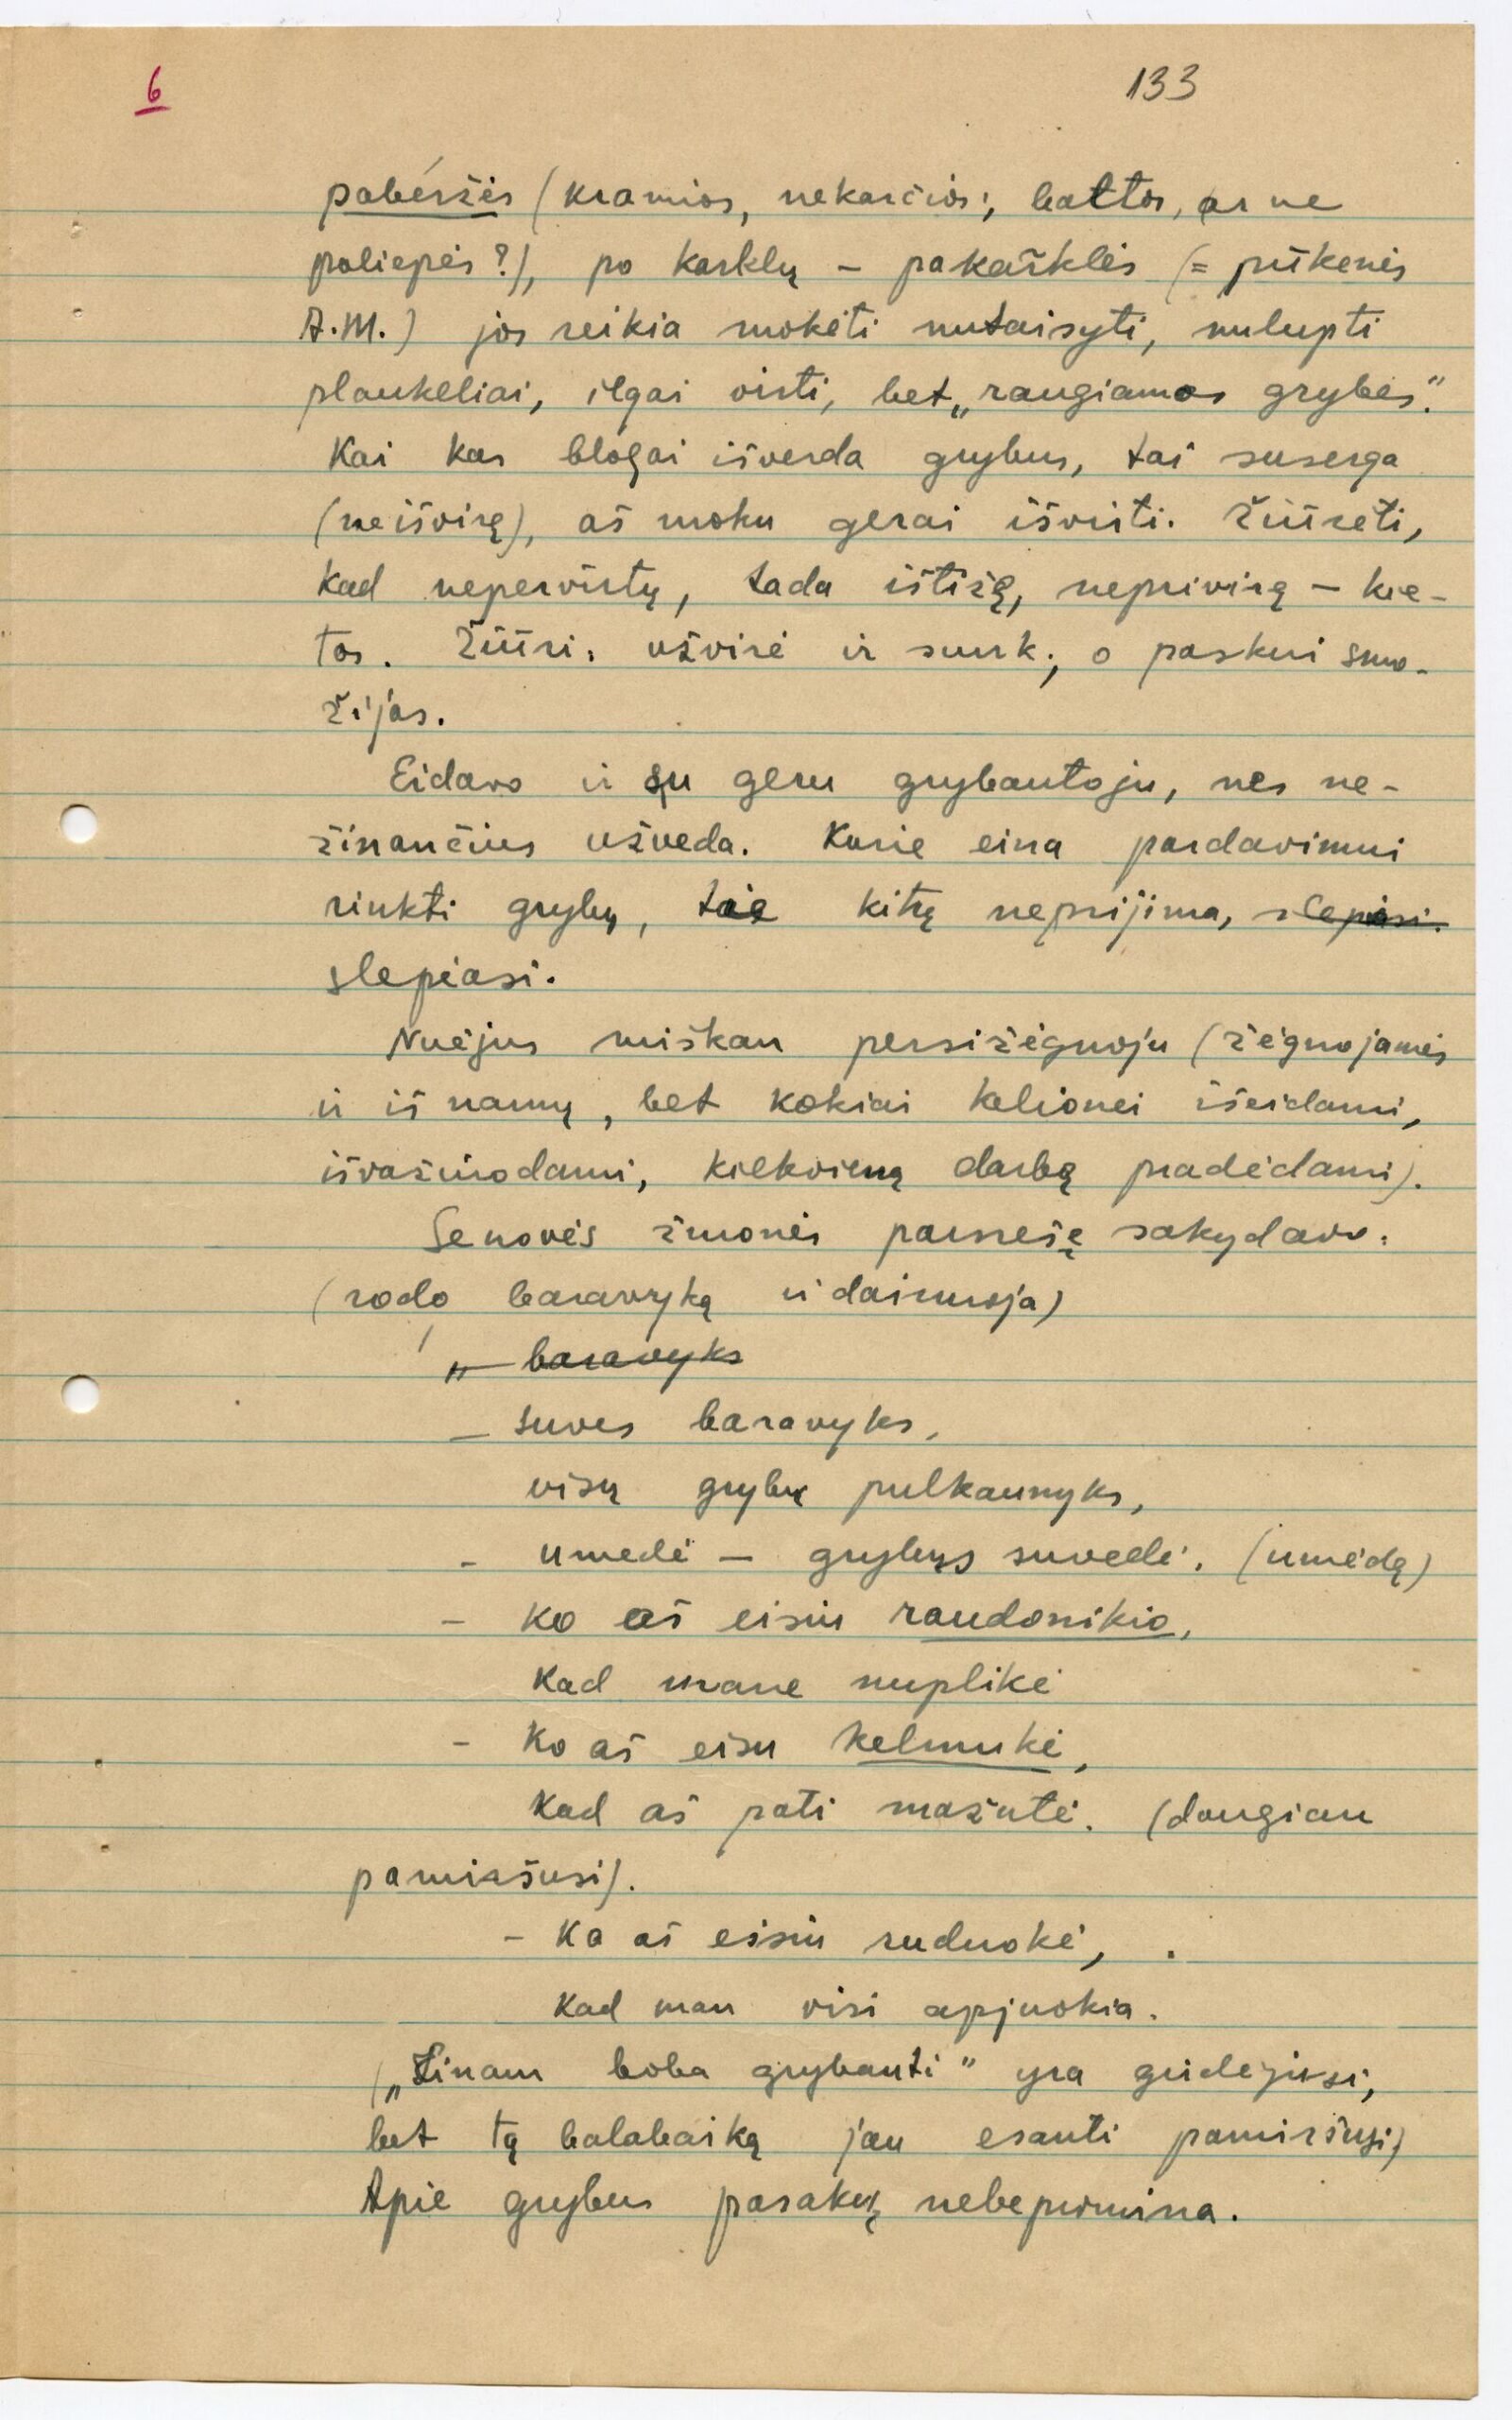 6
133
pabéržės (kramios, nekarčios; baltos, ar ne
paliepės?), po karklų – pakarklės (= pūkenės
A.M.) jos reikia mokėti nutaisyti, nulupti
plaukeliai, ilgai virti, bet „raugiamos grybės".
Kai kas blogai išverda grybus, tai suserga
(neišvirę), aš moku gerai išvirti. Žiūrėti,
kad nepervirtų, tada ištižę, neprivirę – kie-
tos. Žiūri, užvirė ir sunk; o paskui
žijas.
Eidavo ir su geru grybautoju, nes ne-
žinančius užveda. Kurie eina pardavimui
rinkti grybų, tai kitų neprijima, slepiasi.
slepiasi.
Nuėjus miškan persižegnoju (žegnojamės
ir iš namų, bet kokiai kelionei išeidami,
išvažiuodami, kiekvieną darbą pradėdami).
Senovės žmonės parnešę sakydavo:
(rodo baravyką ir dainuoja)
„ – baravyks
– suves baravyks,
visų grybų pulkaunyks,
– umedė – grybus suvedė. (umėdą)
– Ko aš eisiu raudonikio,
Kad mane nuplikė
– Ko aš eisu kelmukė,
Kad aš pati mažutė. (daugiau
pamiršusi).
– Ko aš eisiu ruduokė,
Kad man visi apjuokia.
(„Einam boba grybauti" yra girdėjusi,
bet tą balabaiką jau esanti pamiršusi)
Apie grybus pasakų nebepiomina.